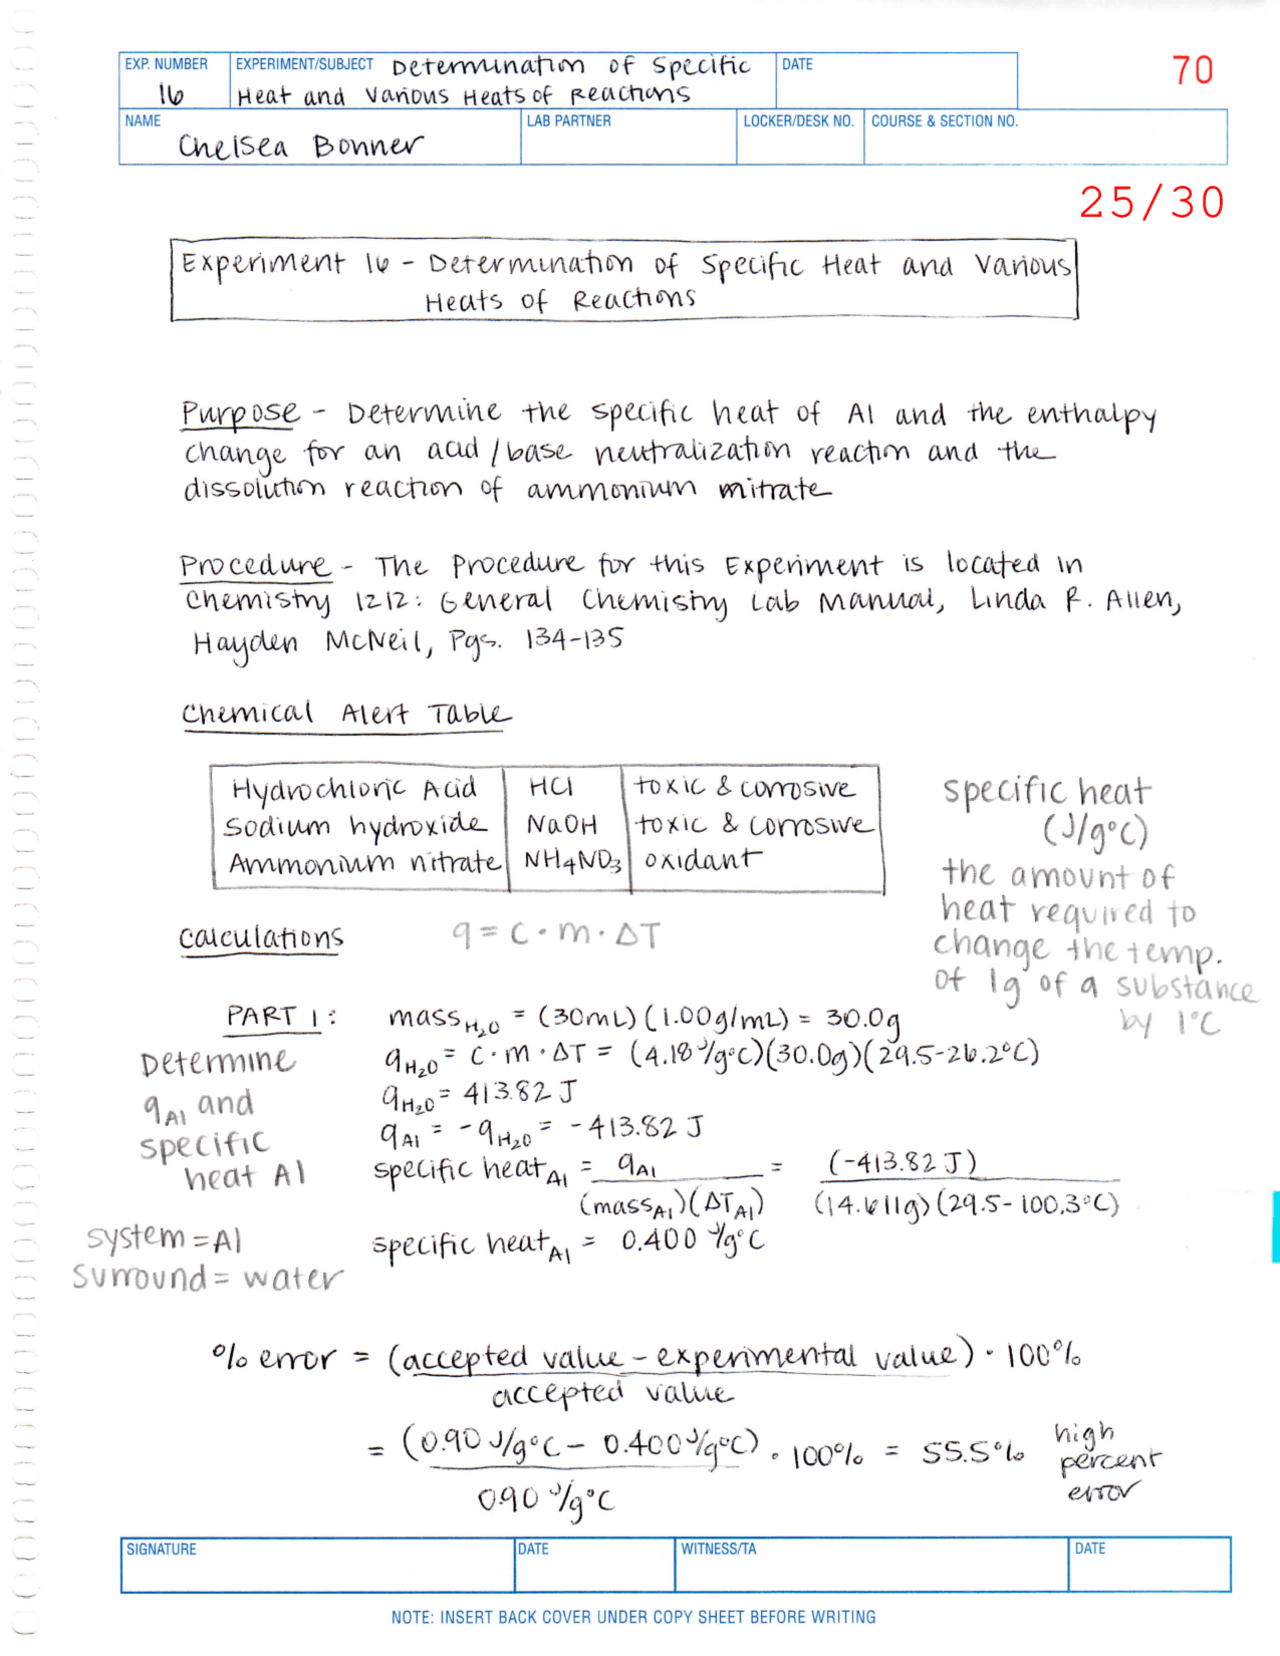 EXP. NUMBER EXPERIMENT/SUBJECT Determination of Specific DATE 70
16 Heat and Various Heats of Reactions
NAME LAB PARTNER LOCKER/DESK NO. COURSE & SECTION NO.
Chelsea Bonner
25/30
Experiment 16 - Determination of Specific Heat and Various
Heats of Reactions
Purpose - Determine the specific heat of Al and the enthalpy
change for an acid/base neutralization reaction and the
dissolution reaction of ammonium nitrate
Procedure - The Procedure for this Experiment is located in
Chemistry 1212: General Chemistry Lab Manual, Linda R. Allen,
Hayden McNeil, Pgs. 134-135
Chemical Alert Table
Hydrochloric Acid HCl toxic & corrosive
Sodium hydroxide NaOH toxic & corrosive
Ammonium nitrate NH4NO3 oxidant
specific heat
(J/g°C)
the amount of
heat required to
change the temp.
of 1g of a substance
by 1°C
Calculations q = C · m · ΔT
PART 1: mass H2O = (30mL)(1.00g/mL) = 30.0g
q H2O = C · m · ΔT = (4.18 J/g°C)(30.0g)(29.5-26.2°C)
q H2O = 413.82 J
q Al = -q H2O = -413.82 J
specific heat Al = q Al = (-413.82 J)
(mass Al)(ΔT Al) (14.611g)(29.5-100.3°C)
specific heat Al = 0.400 J/g°C
Determine
q Al and
specific
heat Al
system = Al
surround = water
% error = (accepted value - experimental value) · 100%
accepted value
= (0.90 J/g°C - 0.400 J/g°C) · 100% = 55.5%
0.90 J/g°C
high
percent
error
SIGNATURE DATE WITNESS/TA DATE
NOTE: INSERT BACK COVER UNDER COPY SHEET BEFORE WRITING